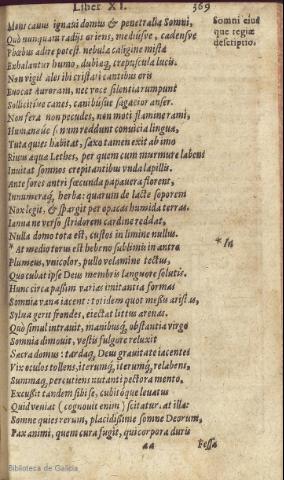 Liber XI. 369
Mons cauus ignaui domus & penetralia Somni,
Quò nunquam radijs oriens, mediusve, cadensve
Phœbus adire potest. nebulæ caligine mista
Exhalantur humo, dubiæq, crepuscula lucis.
Non vigil ales ibi cristati cantibus oris
Euocat Auroram, nec voce silentia rumpunt
Sollicitive canes, canibusve sagacior anser.
Non fera non pecudes, non moti flamine rami,
Humanæve sonum reddunt conuicia lingua,
Tuta quies habitat, saxo tamen exit ab imo
Riuus aquæ Lethes, per quem cum murmure labens
Inuitat somnos crepitantibus vnda lapillis.
Ante fores antri fœcunda papauera florent,
Innumeræq, herbæ: quarum de lacte soporem
Nox legit, & spargit per opacas humida terras.
Ianua ne verso stridorem cardine reddat,
Nulla domo tota est, custos in limine nullus.
* At medio torus est hebeno sublimis in antro
Plumeus, vnicolor, pullo velamine tectus,
Quo cubat ipse Deus membris languore solutis.
Hunc circa passim varias imitantia formas
Somnia vana iacent: totidem quot messis aristas,
Sylua gerit frondes, eiectat littus arenas.
Quò simul intrauit, manibusq, obstantia virgo
Somnia dimouit, vestis fulgore reluxit
Sacra domus: tardaq, Deus grauitate iacentes
Vix oculos tollens, iterumq, iterumq, relabens,
Summaq, percutiens nutanti pectora mento,
Excußit tandem sibi se, cubitoque leuatus
Quid veniat (cognouit enim) scitatur. at illa:
Somne quies rerum, placidißime somne Deorum,
Pax animi, quem cura fugit, qui corpora duris
aa Fessa
Somni eius
que regiæ
descriptio.
* In
Biblioteca de Galicia